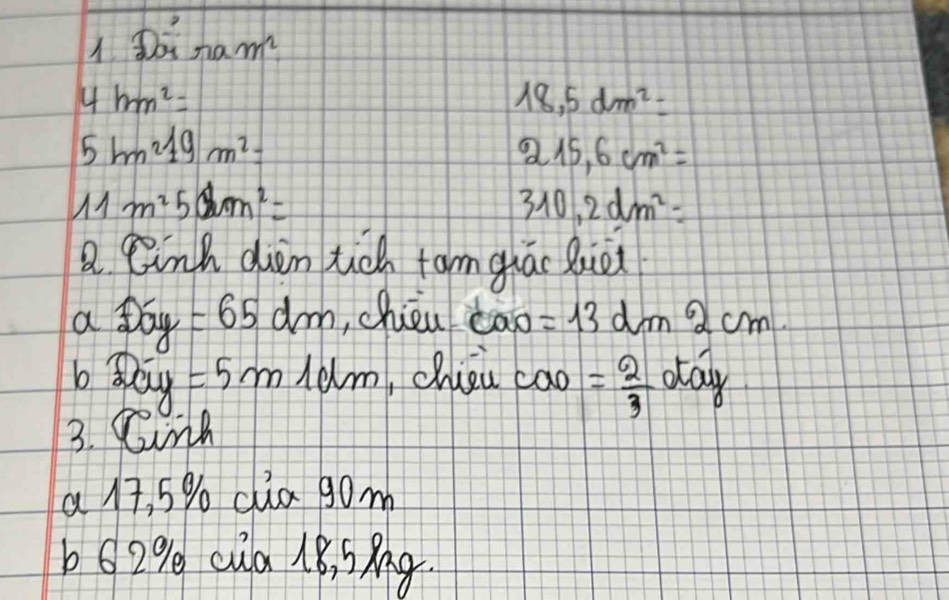 1. Đổi ra m²
4 hm² = 18,5 dm² =
5 hm² 19 m² = 215,6 cm² =
11 m² 5 dm² = 310,2 dm² =
2. Tính diện tích tam giác biết.
a Đáy = 65 dm, chiều cao = 13 dm 2 cm.
b Đáy = 5 m 1 dm, chiều cao = 2/3 đáy
3. Tính
a 17,5% của 90 m
b 62% của 18,5 kg.